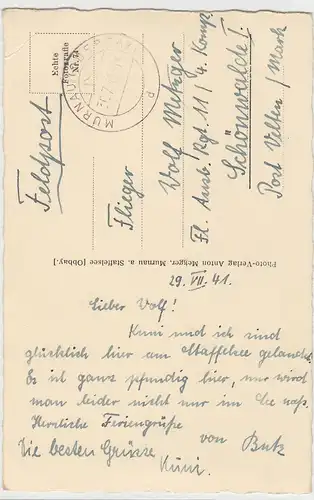 Echte
Fotografie
MURNAU
Feldpost
Flieger
Wolf Metzger
Fl. Ausb. Rgt. 11 / 4. Komp.
Schönwalde I.
Post Velten / Mark
Photo-Verlag Anton Mekger, Murnau a. Staffelsee [Obbay.]
29. VII. 41.
Lieber Wolf!
Kuni und ich sind
glücklich hier am Staffelsee gelandet.
Es ist ganz pfundig hier, nur wird
man leider nicht nur im See naß.
Herzliche Feriengrüße
von Butz
Die besten Grüsse
Kuni.